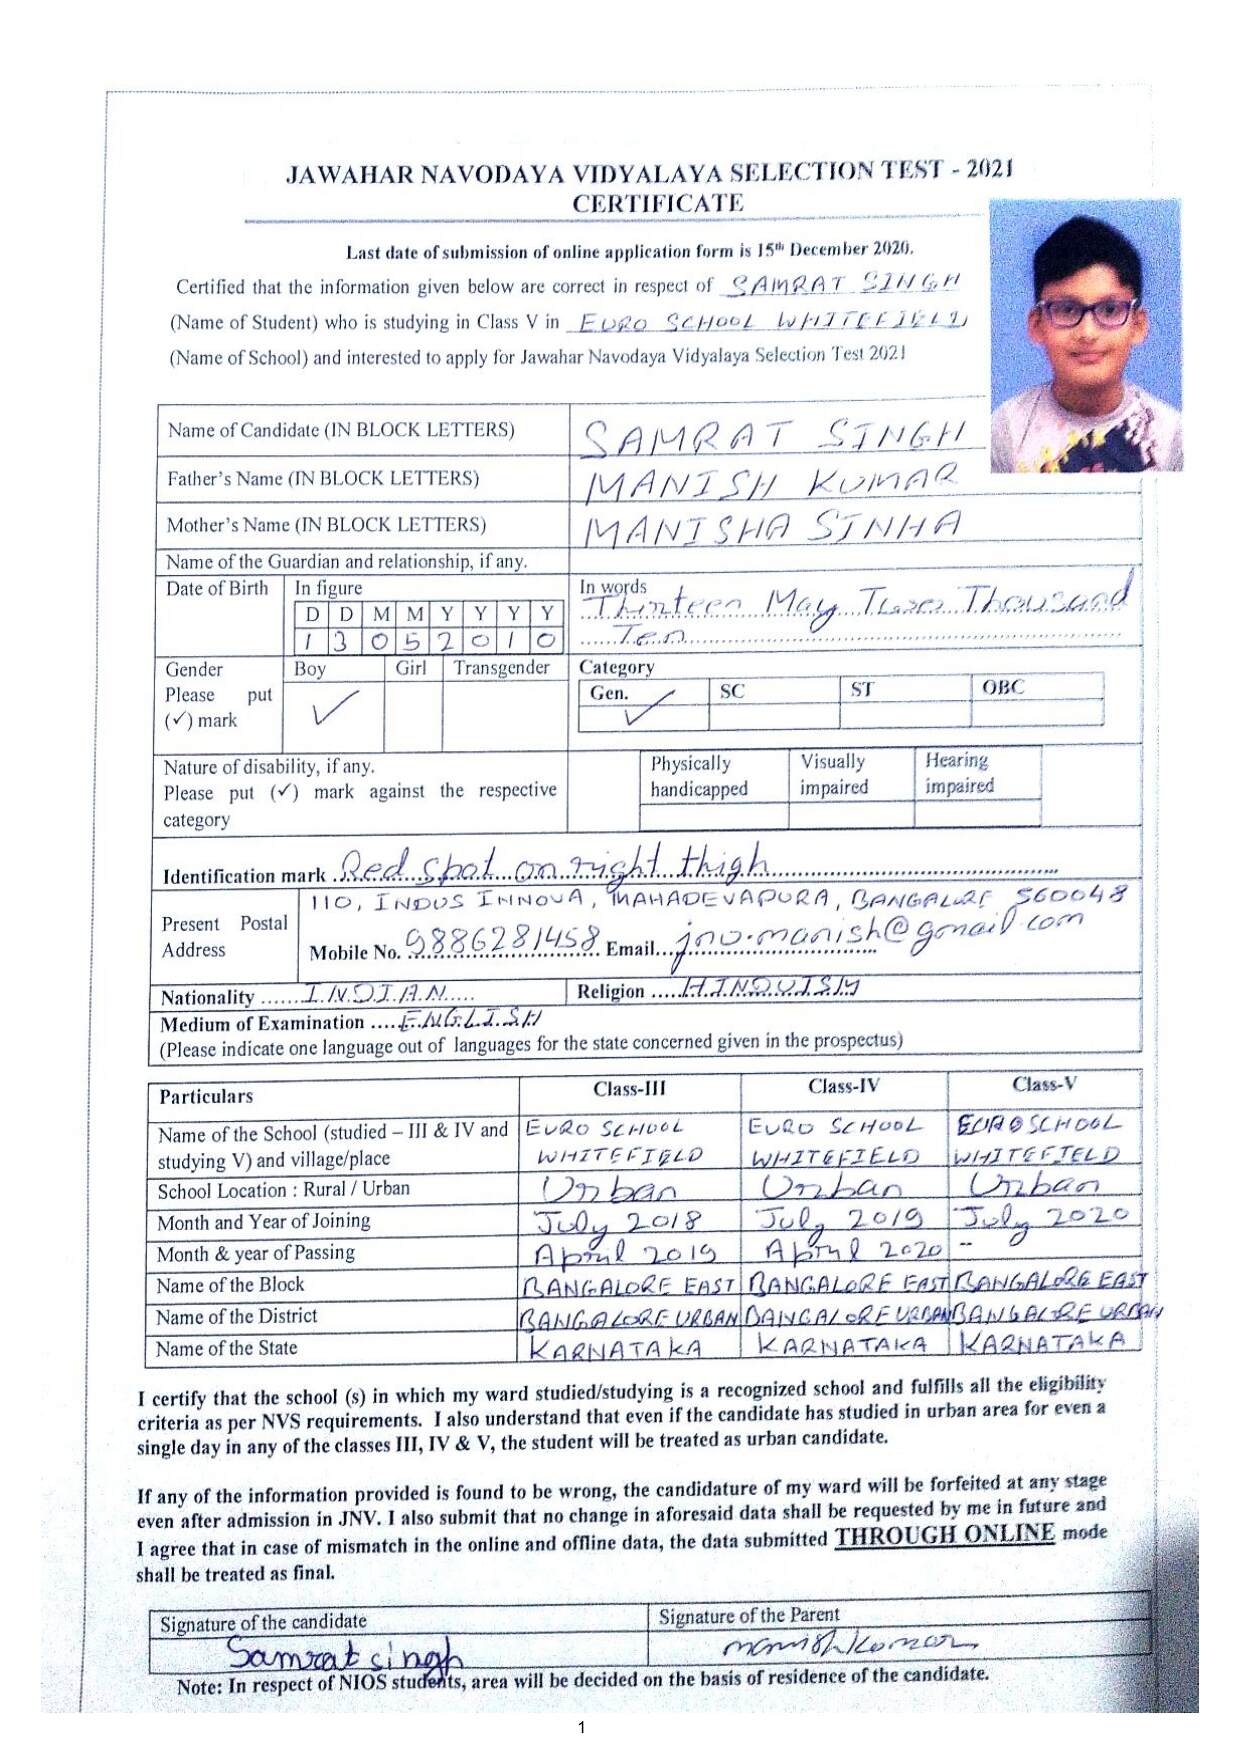 JAWAHAR NAVODAYA VIDYALAYA SELECTION TEST - 2021
CERTIFICATE
Last date of submission of online application form is 15th December 2020.
Certified that the information given below are correct in respect of SAMRAT SINGH
(Name of Student) who is studying in Class V in EURO SCHOOL WHITEFIELD
(Name of School) and interested to apply for Jawahar Navodaya Vidyalaya Selection Test 2021
Name of Candidate (IN BLOCK LETTERS) SAMRAT SINGH
Father's Name (IN BLOCK LETTERS) MANISH KUMAR
Mother's Name (IN BLOCK LETTERS) MANISHA SINHA
Name of the Guardian and relationship, if any.
Date of Birth In figure In words
D D M M Y Y Y Y Thirteen May Two Thousand
1 3 0 5 2 0 1 0 Ten
Gender Boy Girl Transgender Category
Please put Gen. SC ST OBC
(✓) mark ✓ ✓
Nature of disability, if any. Physically Visually Hearing
Please put (✓) mark against the respective handicapped impaired impaired
category
Identification mark Red spot on right thigh
110, INDUS INNOVA, MAHADEVAPURA, BANGALORE 560048
Present Postal
Address Mobile No. 9886281458 Email jnv.manish@gmail.com
Nationality INDIAN Religion HINDUISM
Medium of Examination ENGLISH
(Please indicate one language out of languages for the state concerned given in the prospectus)
Particulars Class-III Class-IV Class-V
Name of the School (studied – III & IV and EURO SCHOOL EURO SCHOOL EURO SCHOOL
studying V) and village/place WHITEFIELD WHITEFIELD WHITEFIELD
School Location : Rural / Urban Urban Urban Urban
Month and Year of Joining July 2018 July 2019 July 2020
Month & year of Passing April 2019 April 2020 --
Name of the Block BANGALORE EAST BANGALORE EAST BANGALORE EAST
Name of the District BANGALORE URBAN BANGALORE URBAN BANGALORE URBAN
Name of the State KARNATAKA KARNATAKA KARNATAKA
I certify that the school (s) in which my ward studied/studying is a recognized school and fulfills all the eligibility
criteria as per NVS requirements. I also understand that even if the candidate has studied in urban area for even a
single day in any of the classes III, IV & V, the student will be treated as urban candidate.
If any of the information provided is found to be wrong, the candidature of my ward will be forfeited at any stage
even after admission in JNV. I also submit that no change in aforesaid data shall be requested by me in future and
I agree that in case of mismatch in the online and offline data, the data submitted THROUGH ONLINE mode
shall be treated as final.
Signature of the candidate Signature of the Parent
Samrat singh Manish Kumar
Note: In respect of NIOS students, area will be decided on the basis of residence of the candidate.
1